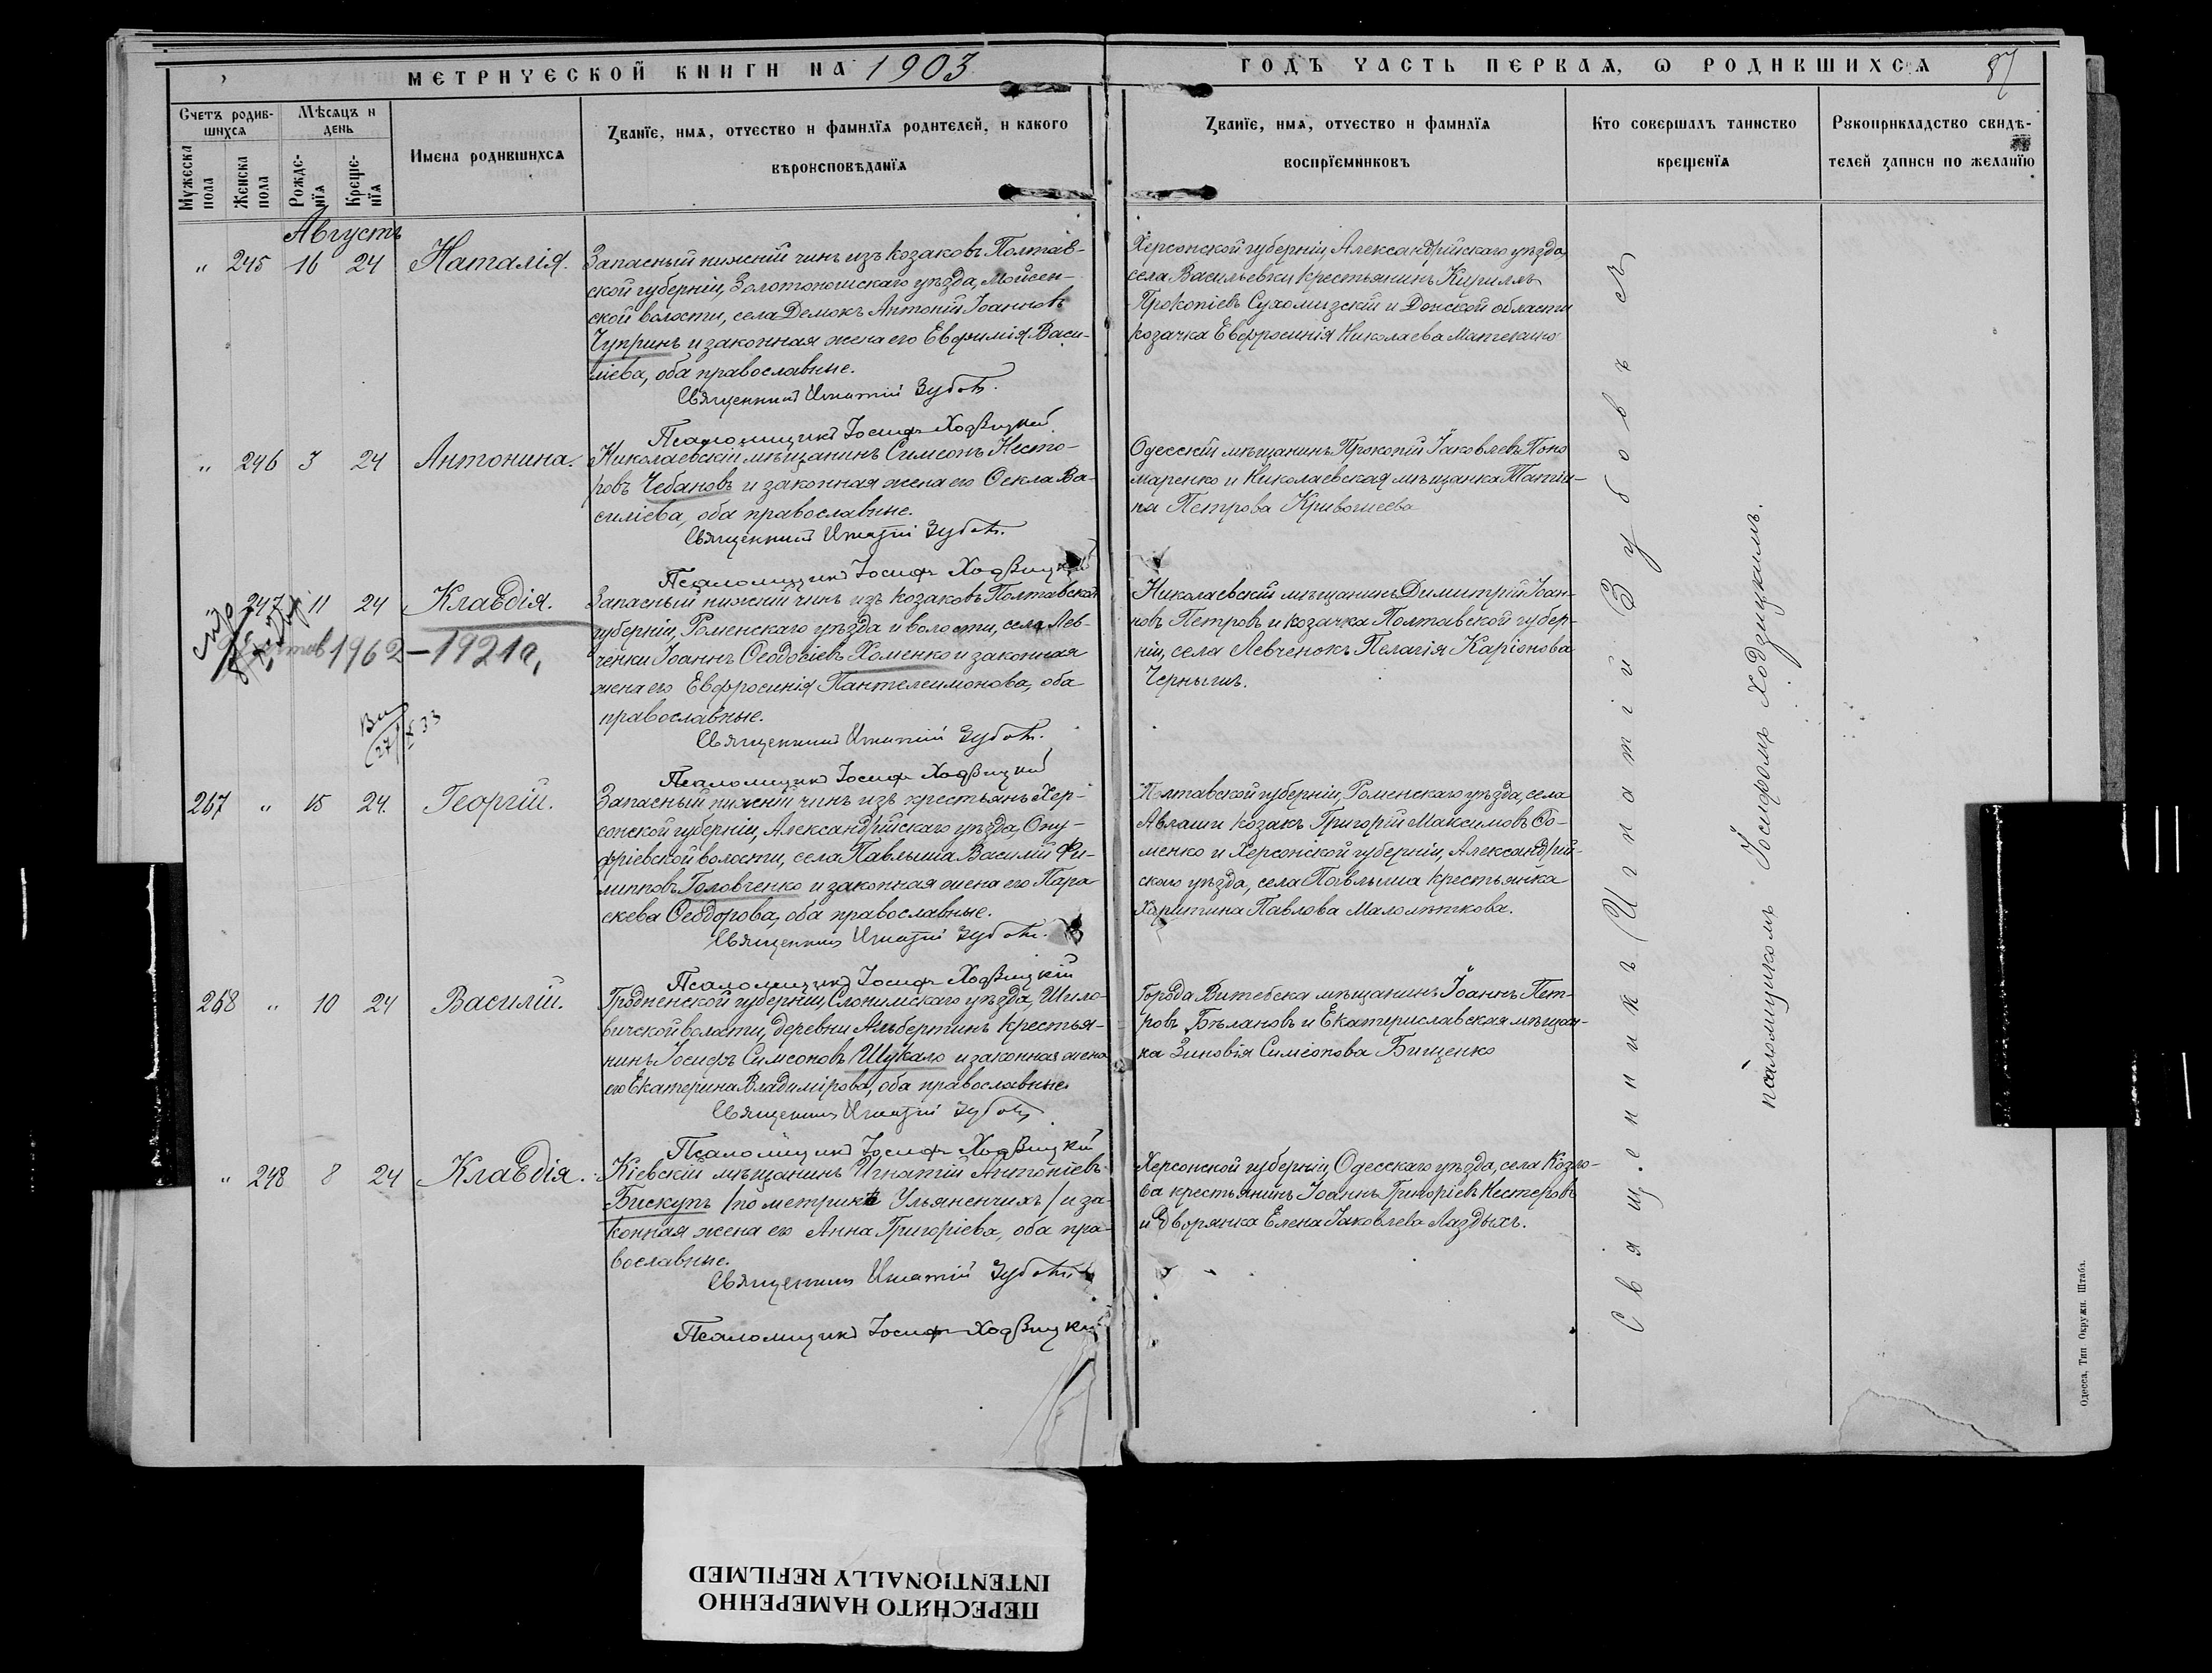 МЕТРИЧЕСКОЙ КНИГИ НА 1903
ГОДЪ ЧАСТЬ ПЕРВАЯ, Ѡ РОДИВШИХСЯ
87
Счетъ родив-
шихся
Мѣсяцъ и
день
Мужеска
пола
Женска
пола
Рожде-
нїя
Креще-
нїя
Имена родившихся
Званїе, имя, отчество и фамилїя родителей, и какого
вѣроисповѣданїя
Званїе, имя, отчество и фамилїя
воспрїемниковъ
Кто совершалъ таинство
крещенїя
Рукоприкладство свидѣ-
телей записи по желанїю
Августъ
" 245 16 24 Наталія.
Запасный нижній чинъ изъ козаковъ Полтав-
ской губерніи, Золотоношскаго уѣзда, Мойсен-
ской волости, села Демокъ Антоній Іоанновъ
Чупринъ и законная жена его Евфимія Васи-
ліева, оба православные.
Священникъ Игнатій Зубовъ.
Псаломщикъ Іосифъ Ходзицкій.
Херсонской губерніи, Александрійскаго уѣзда,
села Васильевки крестьянинъ Кириллъ
Прокопіевъ Сухомизскій и Донской области
козачка Евфросинія Николаева
" 246 3 24 Антонина.
Николаевскій мѣщанинъ Симеонъ Несто-
ровъ Чебановъ и законная жена его Ѳекла Ва-
силіева, оба православные.
Священникъ Игнатій Зубовъ.
Псаломщикъ Іосифъ Ходзицкій
Одесскій мѣщанинъ Прокопій Іаковлевъ Поно
маренко и Николаевская мѣщанка Татіа-
на Петрова Кривошеева
247 11 24 Клавдія.
1962-1921г.
27/X 33
Запасный нижній чинъ изъ козаковъ Полтавской
губерніи, Роменскаго уѣзда и волости, села Лев-
ченки Іоаннъ Ѳеодосіевъ Хоменко и законная
жена его Евфросинія Пантелеимонова, оба
православные.
Священникъ Игнатій Зубовъ.
Псаломщикъ Іосифъ Ходзицкій
Николаевскій мѣщанинъ Димитрій Іоан-
новъ Петровъ и козачка Полтавской губер-
ніи, села Левченокъ Пелагія Каріонова
Чернышъ.
267 " 15 24 Георгій.
Запасный нижній чинъ изъ крестьянъ Хер-
сонской губерніи, Александрійскаго уѣзда, Ону-
фріевской волости, села Павлыша Василій Фи-
липповъ Головченко и законная жена его Пара
скева Ѳеодорова, оба православные.
Священникъ Игнатій Зубовъ.
Псаломщикъ Іосифъ Ходзицкій
Полтавской губерніи, Роменскаго уѣзда, села
Авлаши козакъ Григорій Максимовъ Ѳо-
менко и Херсонской губерніи, Александрій-
скаго уѣзда, села Павлыша крестьянка
Харитина Павлова Маломѣткова.
268 " 10 24 Василій.
Гродненской губерніи, Слонимскаго уѣзда, Шило-
вичской волости, деревни Альбертинъ крестья-
нинъ Іосифъ Симеоновъ Шукало и законная жена
его Екатерина Владимірова, оба православные.
Священникъ Игнатій Зубовъ
Псаломщикъ Іосифъ Ходзицкій
Города Витебска мѣщанинъ Іоаннъ Пет-
ровъ Бѣлановъ и Екатериславская мѣщан-
ка Зиновія Симеонова Бищенко
" 248 8 24 Клавдія.
Кіевскій мѣщанинъ Игнатій Антоніевъ
Бискупъ /по метрикѣ Ульяненчихъ/ и за-
конная жена его Анна Григоріева, оба пра-
вославные.
Священникъ Игнатій Зубовъ
Псаломщикъ Іосифъ Ходзицкій
Херсонской губерніи, Одесскаго уѣзда, села Козло-
ва крестьянинъ Іоаннъ Григоріевъ Нестеровъ
и дворянка Елена Іаковлева Лаздыхъ.
Священникъ Игнатій Зубовъ съ
псаломщикомъ Іосифомъ Ходзицкимъ.
Одесса, Тип. Окружн. Штаба.
ПЕРЕСНЯТО НАМЕРЕННО
INTENTIONALLY REFILMED